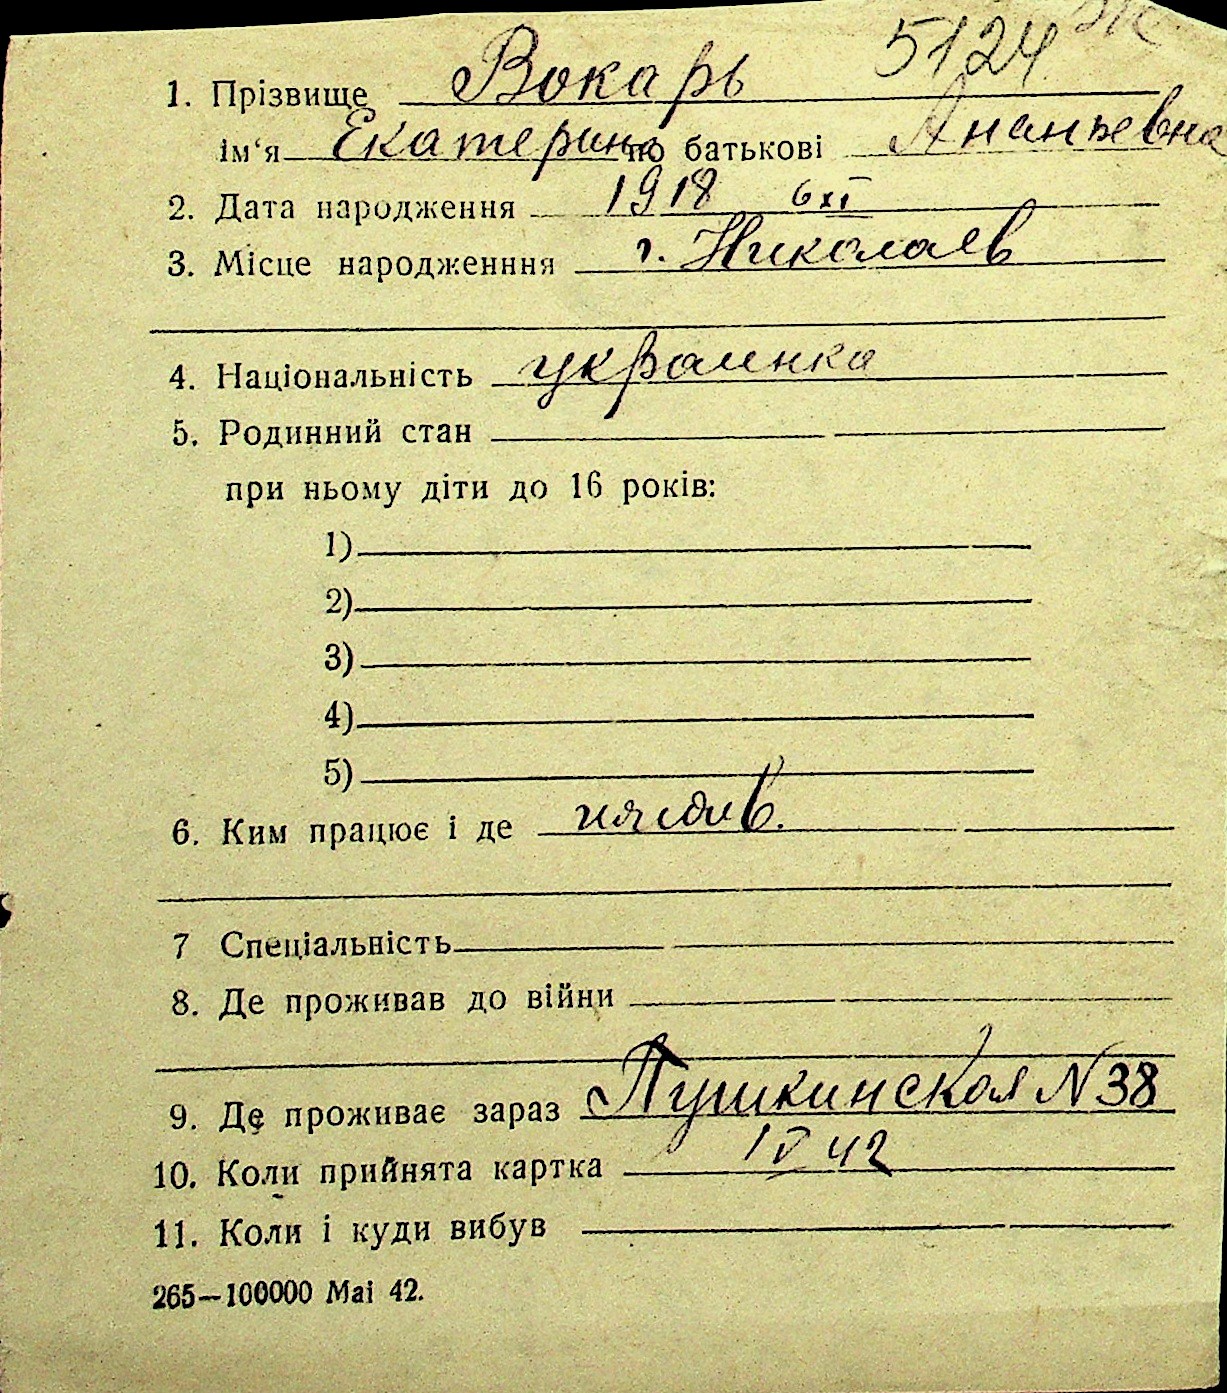 5124
1. Прізвище Вокарь
ім‘я Екатерина по батькові Ананьевна
2. Дата народження 1918 6 XI
3. Місце народженння г. Николаев
4. Національність украинка
5. Родинний стан
при ньому діти до 16 років:
1)
2)
3)
4)
5)
6. Ким працює і де
7 Спеціальність
8. Де проживав до війни
9. Де проживає зараз Пушкинская N 38
10. Коли прийнята картка 1 V 42
11. Коли і куди вибув
265—100000 Mai 42.